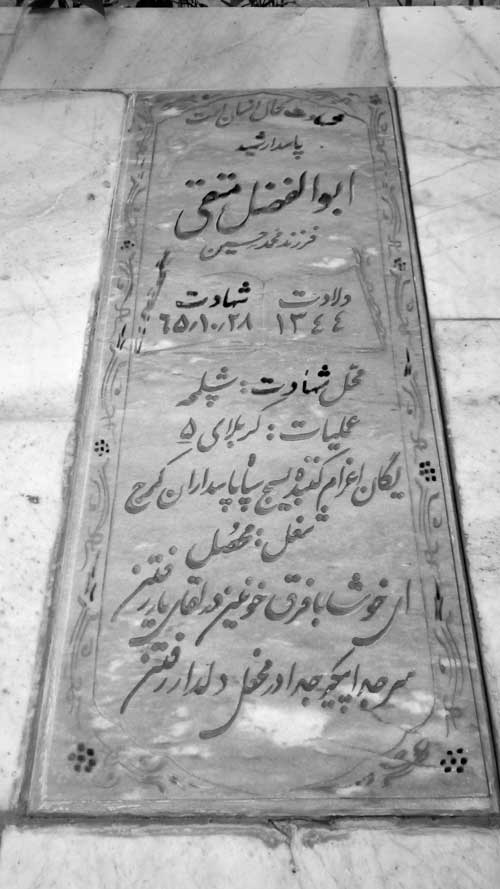 شهادت کمال انسان است
پاسدار شهید
ابوالفضل متقی
فرزند محمد حسین
ولادت شهادت
۱۳۴۴ ۶۵/۱۰/۲۸
محل شهادت: شلمچه
عملیات: کربلای ۵
یگان اعزام کننده بسیج سپاه پاسداران کرج
شغل: محصل
ای خوشا با فرق خونین در لقای یار رفتن
سر جدا پیکر جدا در محفل دلدار رفتن